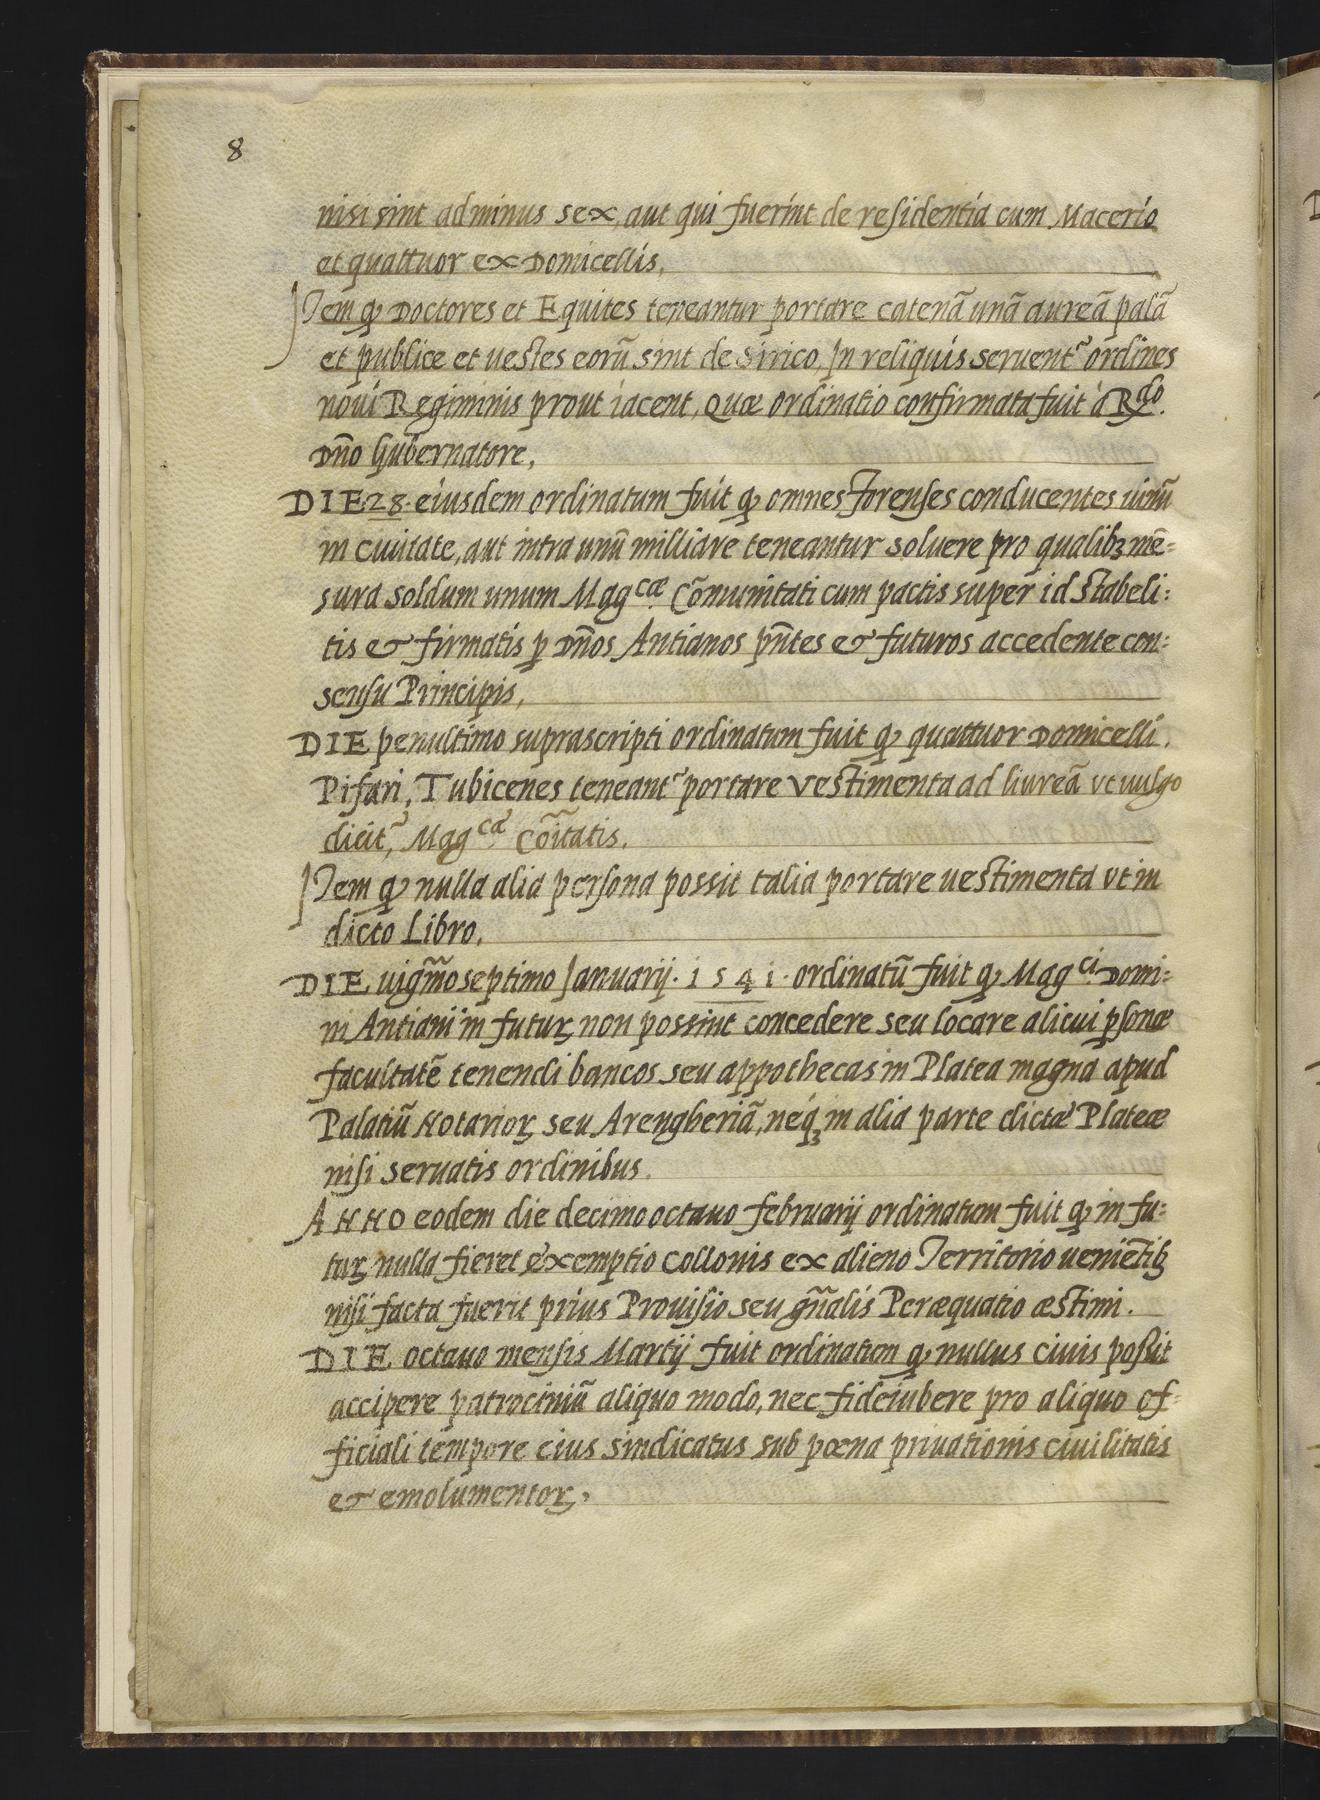 8
nisi sint ad minus sex, aut qui fuerint de residentia cum Macerio
et quattuor ex Domicellis,
Item ꝙ Doctores et Equites teneantur portare catenã unã aureã palã
et publice et uestes eorũ sint de Sirico, In reliquis seruent᷑ ordines
noui Regiminis prout iacent, Quæ ordinatio confirmata fuit à Rdo.
Dño Gubernatore,
DIE 28. eiusdem ordinatum fuit ꝙ omnes Forenses conducentes uinũ
in ciuitate, aut intra unũ milliare teneantur soluere pro qualibꝫ mẽ=
sura soldum unum Magcæ. Cõmunitati cum pactis super id stabeli:
tis & firmatis ꝑ Dños Antianos pñtes & futuros accedente con:
sensu Principis,
DIE penultimo suprascripti ordinatum fuit ꝙ quattuor Domicelli,
Pifari, Tubicenes teneant᷑ portare vestimenta ad liureã vt uulgo
dicit᷑, Magcæ. Cõitatis.
Item ꝙ nulla alia persona possit talia portare uestimenta vt in
dicto Libro,
DIE uigm̃o septimo Ianuarij. 1541. ordinatũ fuit ꝙ Magci. Domi:
ni Antiani in futuꝝ non possint concedere seu locare alicui ꝑsonæ
facultatẽ tenendi bancos seu appothecas in Platea magna apud
Palatiũ Notarioꝝ seu Arengheriã, neqꝫ in alia parte dictæ Plateæ
nisi seruatis ordinibus.
ANNO eodem die decimooctauo februarij ordinatum fuit ꝙ in fu:
tuꝝ nulla fieret exemptio collonis ex alieno Territorio ueniẽtibꝫ
nisi facta fuerit prius Prouisio seu gñalis Peræquatio æstimi.
DIE octauo mensis Martij fuit ordinatum ꝙ nullus ciuis possit
accipere patrociniũ aliquo modo, nec fideiubere pro aliquo of=
ficiali tempore eius sindicatus sub pœna priuationis ciuilitatis
& emolumentoꝝ,